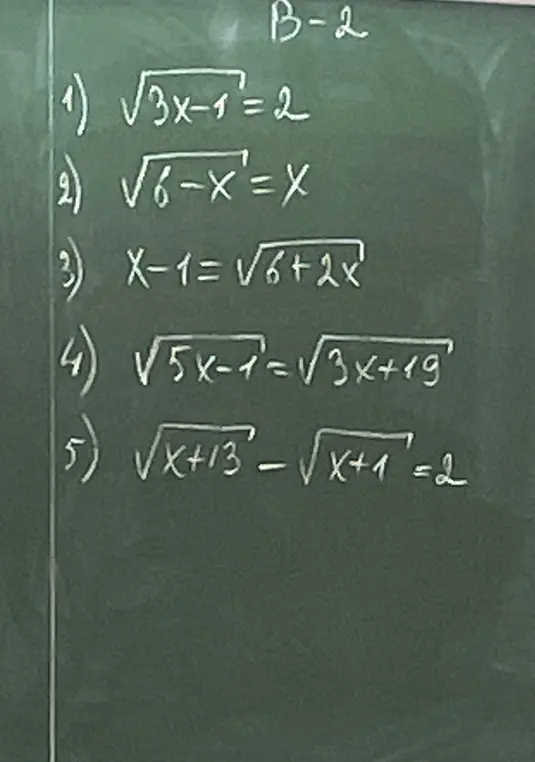 В-2
1) √3x-1 = 2
2) √6-x = x
3) x-1 = √6+2x
4) √5x-1 = √3x+19
5) √x+13 - √x+1 = 2